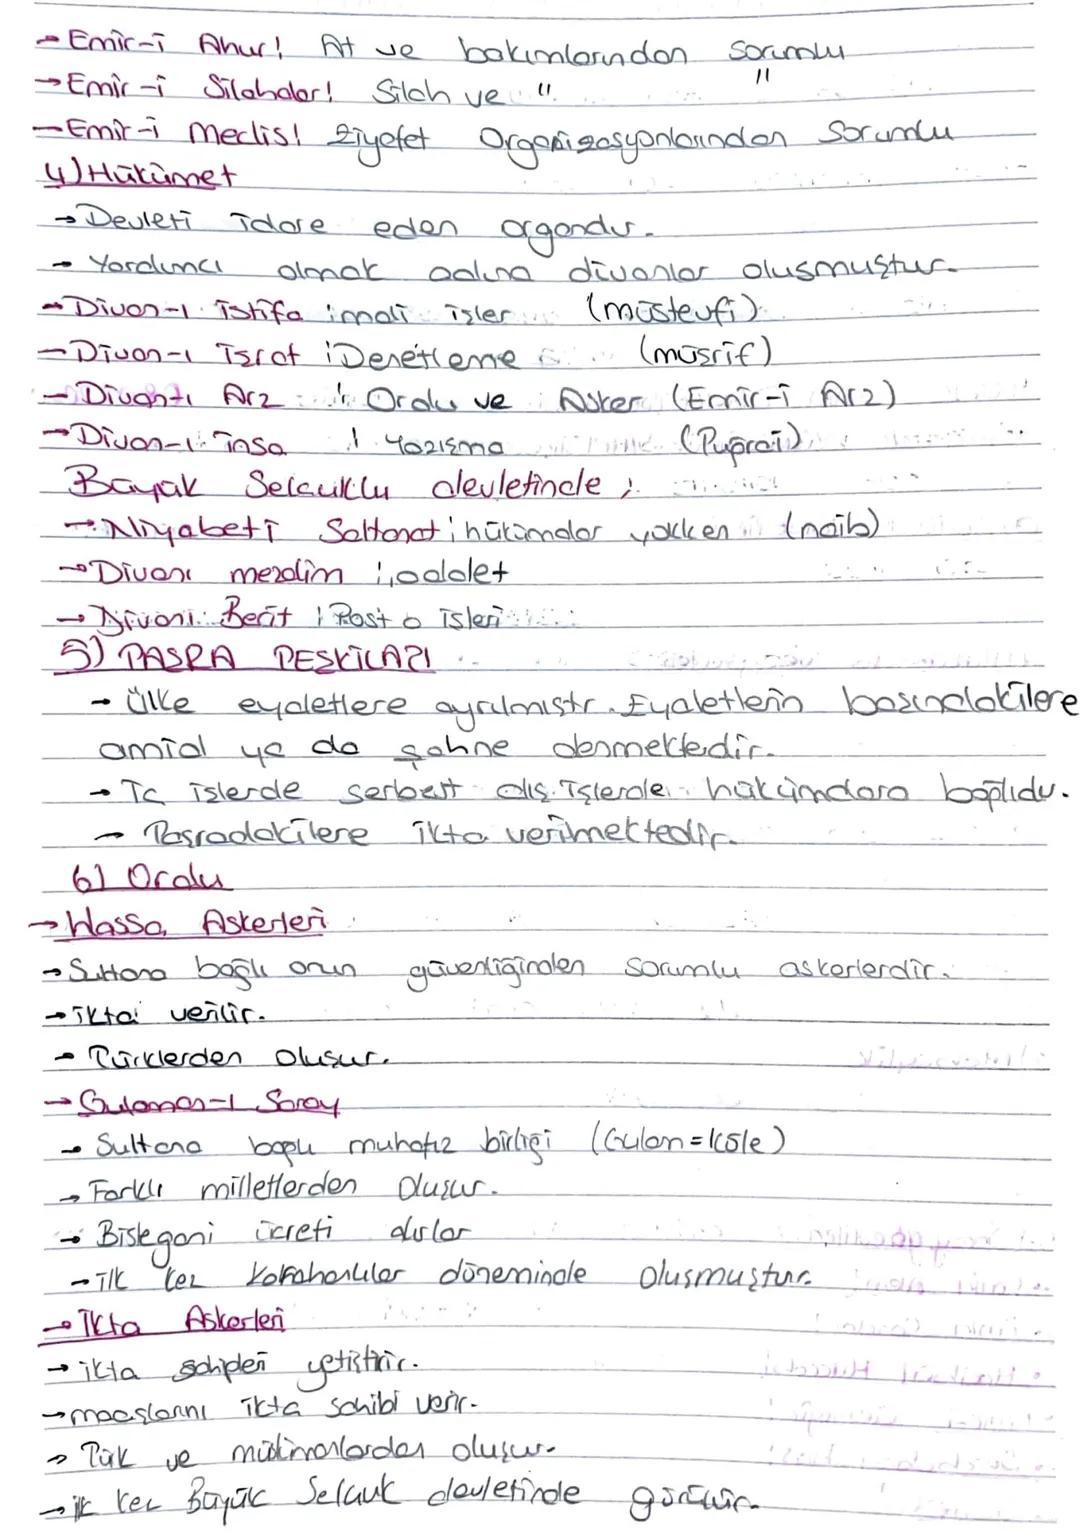 → Emir-i Ahur! At ve bakımlarından sorumlu
→ Emir-i Silahdar! Silah ve " "
→ Emir-i Meclis! Ziyafet Organizasyonlarından Sorumlu
4) Hükümet
→ Devleti idare eden organdır.
→ Yardımcı olmak adına divanlar oluşmuştur.
→ Divan-ı istifa : mali işler (müstevfi)
→ Divan-ı İsraf : Denetleme (müsrif)
→ Divan-ı Arz : Ordu ve Asker (Emir-i Arz)
→ Divan-ı İnşa : Yazışma (Tuğrai)
Büyük Selçuklu devletinde ;
→ Niyabeti Saltanat : hükümdar yokken (naib)
→ Divanı mezalim : adalet
→ Divanı Berit : Posta işleri
5) TAŞRA TEŞKİLATI
→ Ülke eyaletlere ayrılmıştır. Eyaletlerin başındakilere
amid ya da şahne denmektedir.
→ İç işlerde serbest dış işlerde hükümdara bağlıdır.
→ Taşradakilere ikta verilmektedir.
6) Ordu
→ Hassa Askerleri
→ Sultana bağlı onun güvenliğinden sorumlu askerlerdir.
→ ikta verilir.
→ Türklerden oluşur.
→ Gulaman-ı Saray
→ Sultana bağlı muhafız birliği (Gulam = Köle)
→ Farklı milletlerden oluşur.
→ Bistegani ücreti alırlar
→ ilk kez Karahanlılar döneminde oluşmuştur.
→ İkta Askerleri
→ ikta sahipleri yetiştirir.
→ maaşlarını ikta sahibi verir.
→ Türk ve müslimanlardan oluşur.
→ ilk kez Büyük Selçuk devletinde görülür.